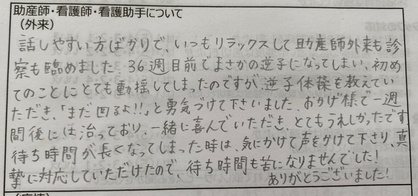 助産師・看護師・看護助手について
（外来）
話しやすい方ばかりで、いつもリラックスして助産師外来も診
察も臨めました。36週目前でよさかの逆子になってしまい、初め
てのことにとても動揺してしまったのですが、逆子体操を教えてい
ただき、「まだ回るよ!!」と勇気づけて下さいました。おかげ様で一週
間後には治っており、一緒に喜んでいただき、とてもうれしかったです。
待ち時間が長くなってしまった時は、気にかけて声をかけて下さり、真
摯に対応していただけたので、待ち時間も苦になりませんでした!
ありがとうございました!